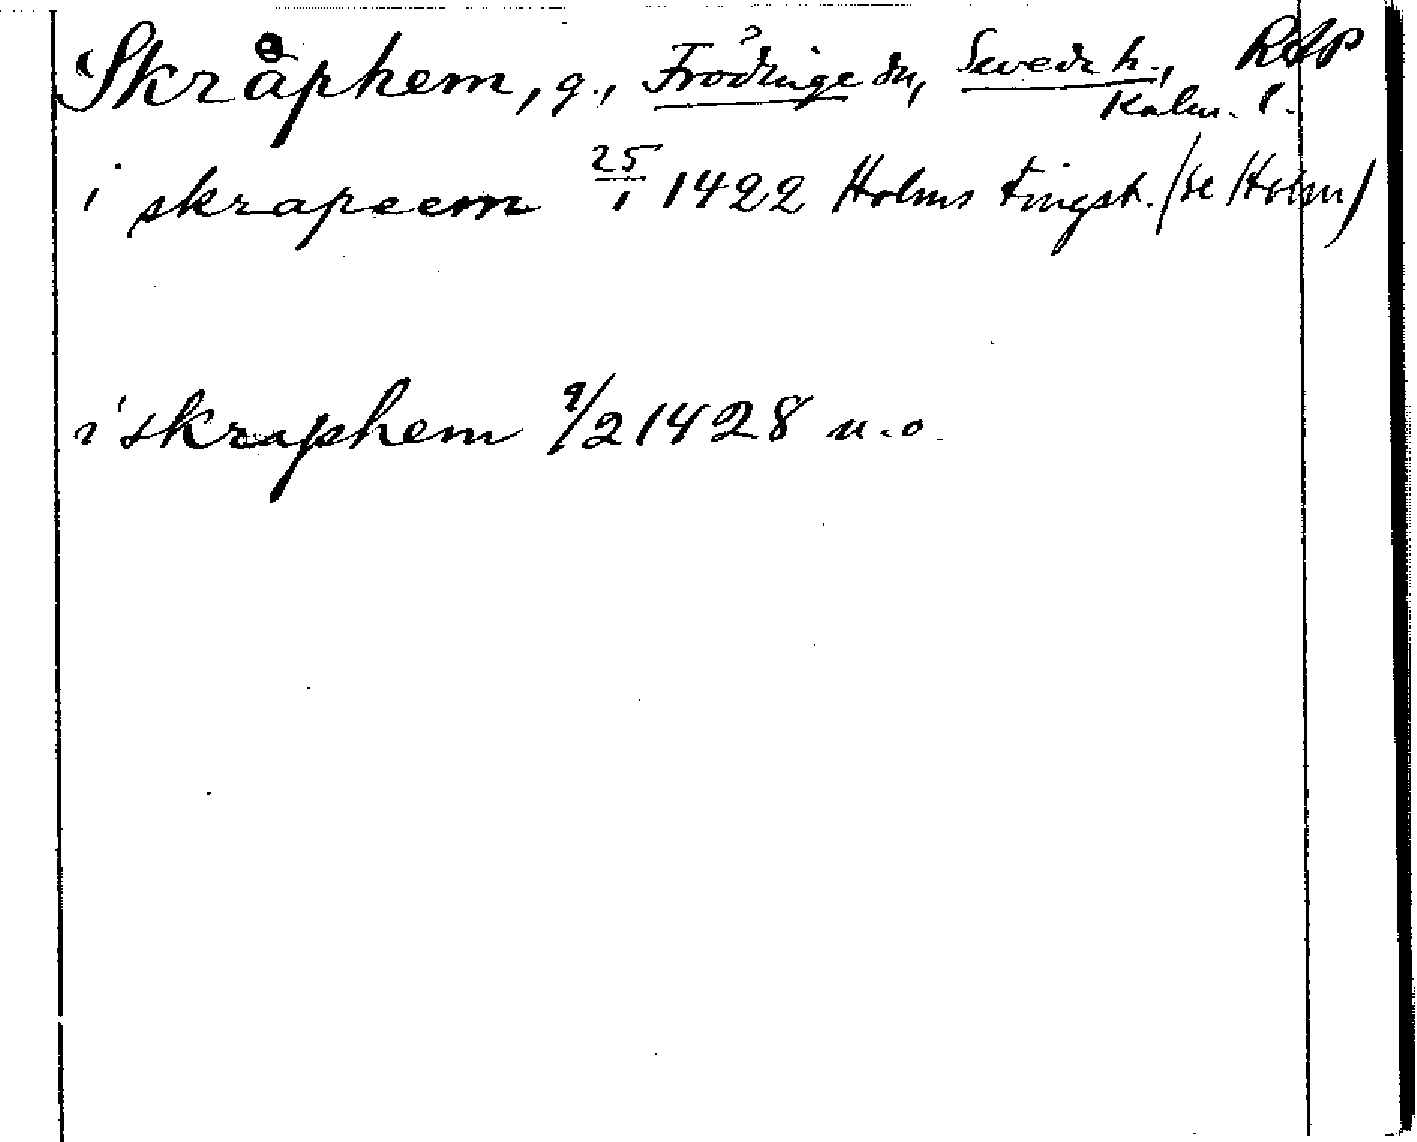 Skråphem, g., Frödinge sn, Sevede h., RAP
Kalm. l.
i skrapeem 25/1 1422 Holms tingst. (se Holm)
i skraphem 9/2 1428 u.o.